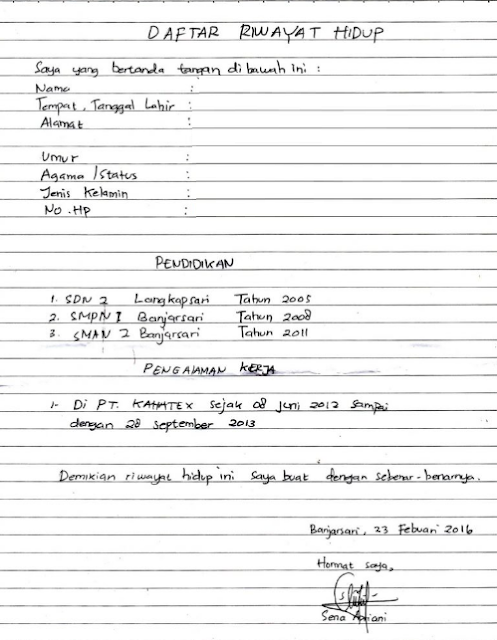 DAFTAR RIWAYAT HIDUP
Saya yang bertanda tangan dibawah ini :
Nama :
Tempat, Tanggal Lahir :
Alamat :
Umur :
Agama / Status :
Jenis Kelamin :
No. HP :
PENDIDIKAN
1. SDN 2 Langkapsari Tahun 2005
2. SMPN 1 Banjarsari Tahun 2008
3. SMAN 2 Banjarsari Tahun 2011
PENGALAMAN KERJA
1- Di PT. KAHATEX sejak 08 Juni 2012 Sampai
dengan 28 September 2013
Demikian riwayat hidup ini saya buat dengan sebenar-benarnya.
Banjarsari, 23 Febuari 2016
Hormat saya,
Sena Apriani